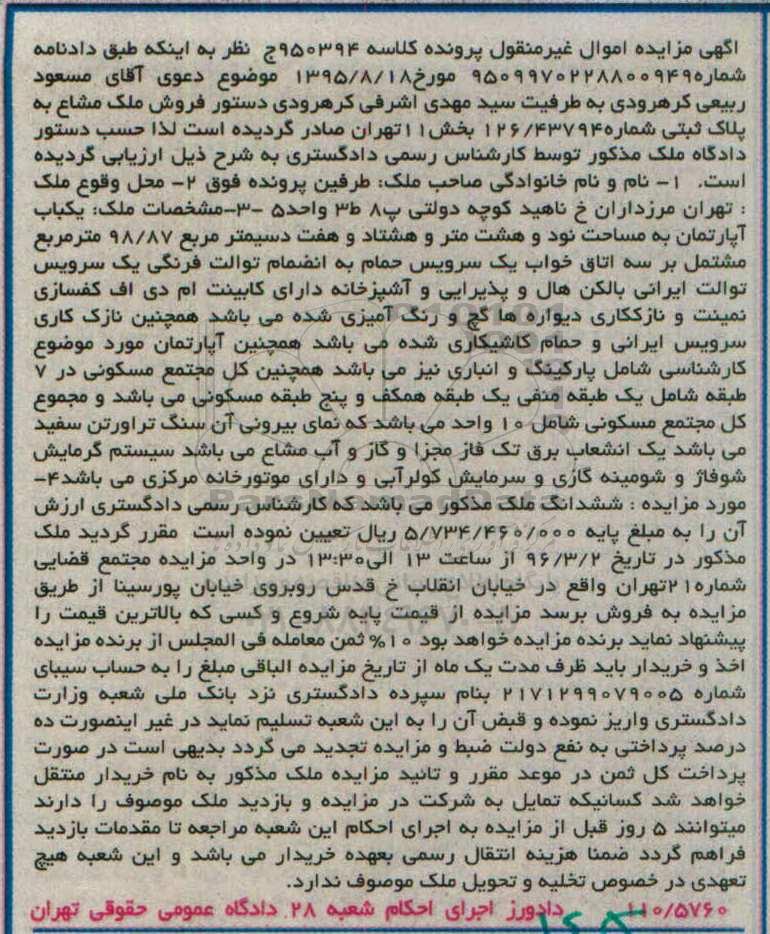 آگهی مزایده اموال غیرمنقول پرونده کلاسه ۹۵۰۳۹۴ج نظر به اینکه طبق دادنامه
شماره۹۵۰۹۹۷۰۲۲۸۸۰۰۹۴۹ مورخ۱۳۹۵/۸/۱۸ موضوع دعوی آقای مسعود
ربیعی کرهرودی به طرفیت سید مهدی اشرفی کرهرودی دستور فروش ملک مشاع به
پلاک ثبتی شماره۱۲۶/۴۳۷۹۴ بخش۱۱تهران صادر گردیده است لذا حسب دستور
دادگاه ملک مذکور توسط کارشناس رسمی دادگستری به شرح ذیل ارزیابی گردیده
است. ۱- نام و نام خانوادگی صاحب ملک: طرفین پرونده فوق ۲- محل وقوع ملک
: تهران مرزداران خ ناهید کوچه دولتی پ۸ ط۳ واحد۵ -۳-مشخصات ملک: یکباب
آپارتمان به مساحت نود و هشت متر و هشتاد و هفت دسیمتر مربع ۹۸/۸۷ مترمربع
مشتمل بر سه اتاق خواب یک سرویس حمام به انضمام توالت فرنگی یک سرویس
توالت ایرانی بالکن هال و پذیرایی و آشپزخانه دارای کابینت ام دی اف کفسازی
نمینت و نازککاری دیواره ها گچ و رنگ آمیزی شده می باشد همچنین نازک کاری
سرویس ایرانی و حمام کاشیکاری شده می باشد همچنین آپارتمان مورد موضوع
کارشناسی شامل پارکینگ و انباری نیز می باشد همچنین کل مجتمع مسکونی در ۷
طبقه شامل یک طبقه منفی یک طبقه همکف و پنج طبقه مسکونی می باشد و مجموع
کل مجتمع مسکونی شامل ۱۰ واحد می باشد که نمای بیرونی آن سنگ تراورتن سفید
می باشد یک انشعاب برق تک فاز مجزا و گاز و آب مشاع می باشد سیستم گرمایش
شوفاژ و شومینه گازی و سرمایش کولرآبی و دارای موتورخانه مرکزی می باشد۴-
مورد مزایده : ششدانگ ملک مذکور می باشد که کارشناس رسمی دادگستری ارزش
آن را به مبلغ پایه ۵/۷۳۴/۴۶۰/۰۰۰ ریال تعیین نموده است مقرر گردید ملک
مذکور در تاریخ ۹۶/۳/۲ از ساعت ۱۳ الی۱۳:۳۰ در واحد مزایده مجتمع قضایی
شماره۲۱تهران واقع در خیابان انقلاب خ قدس روبروی خیابان پورسینا از طریق
مزایده به فروش برسد مزایده از قیمت پایه شروع و کسی که بالاترین قیمت را
پیشنهاد نماید برنده مزایده خواهد بود ۱۰% ثمن معامله فی المجلس از برنده مزایده
اخذ و خریدار باید ظرف مدت یک ماه از تاریخ مزایده الباقی مبلغ را به حساب سیبای
شماره ۲۱۷۱۲۹۹۰۷۹۰۰۵ بنام سپرده دادگستری نزد بانک ملی شعبه وزارت
دادگستری واریز نموده و قبض آن را به این شعبه تسلیم نماید در غیر اینصورت ده
درصد پرداختی به نفع دولت ضبط و مزایده تجدید می گردد بدیهی است در صورت
پرداخت کل ثمن در موعد مقرر و تائید مزایده ملک مذکور به نام خریدار منتقل
خواهد شد کسانیکه تمایل به شرکت در مزایده و بازدید ملک موصوف را دارند
میتوانند ۵ روز قبل از مزایده به اجرای احکام این شعبه مراجعه تا مقدمات بازدید
فراهم گردد ضمنا هزینه انتقال رسمی بعهده خریدار می باشد و این شعبه هیچ
تعهدی در خصوص تخلیه و تحویل ملک موصوف ندارد.
۱۱۰/۵۷۶۰ دادورز اجرای احکام شعبه ۲۸ دادگاه عمومی حقوقی تهران